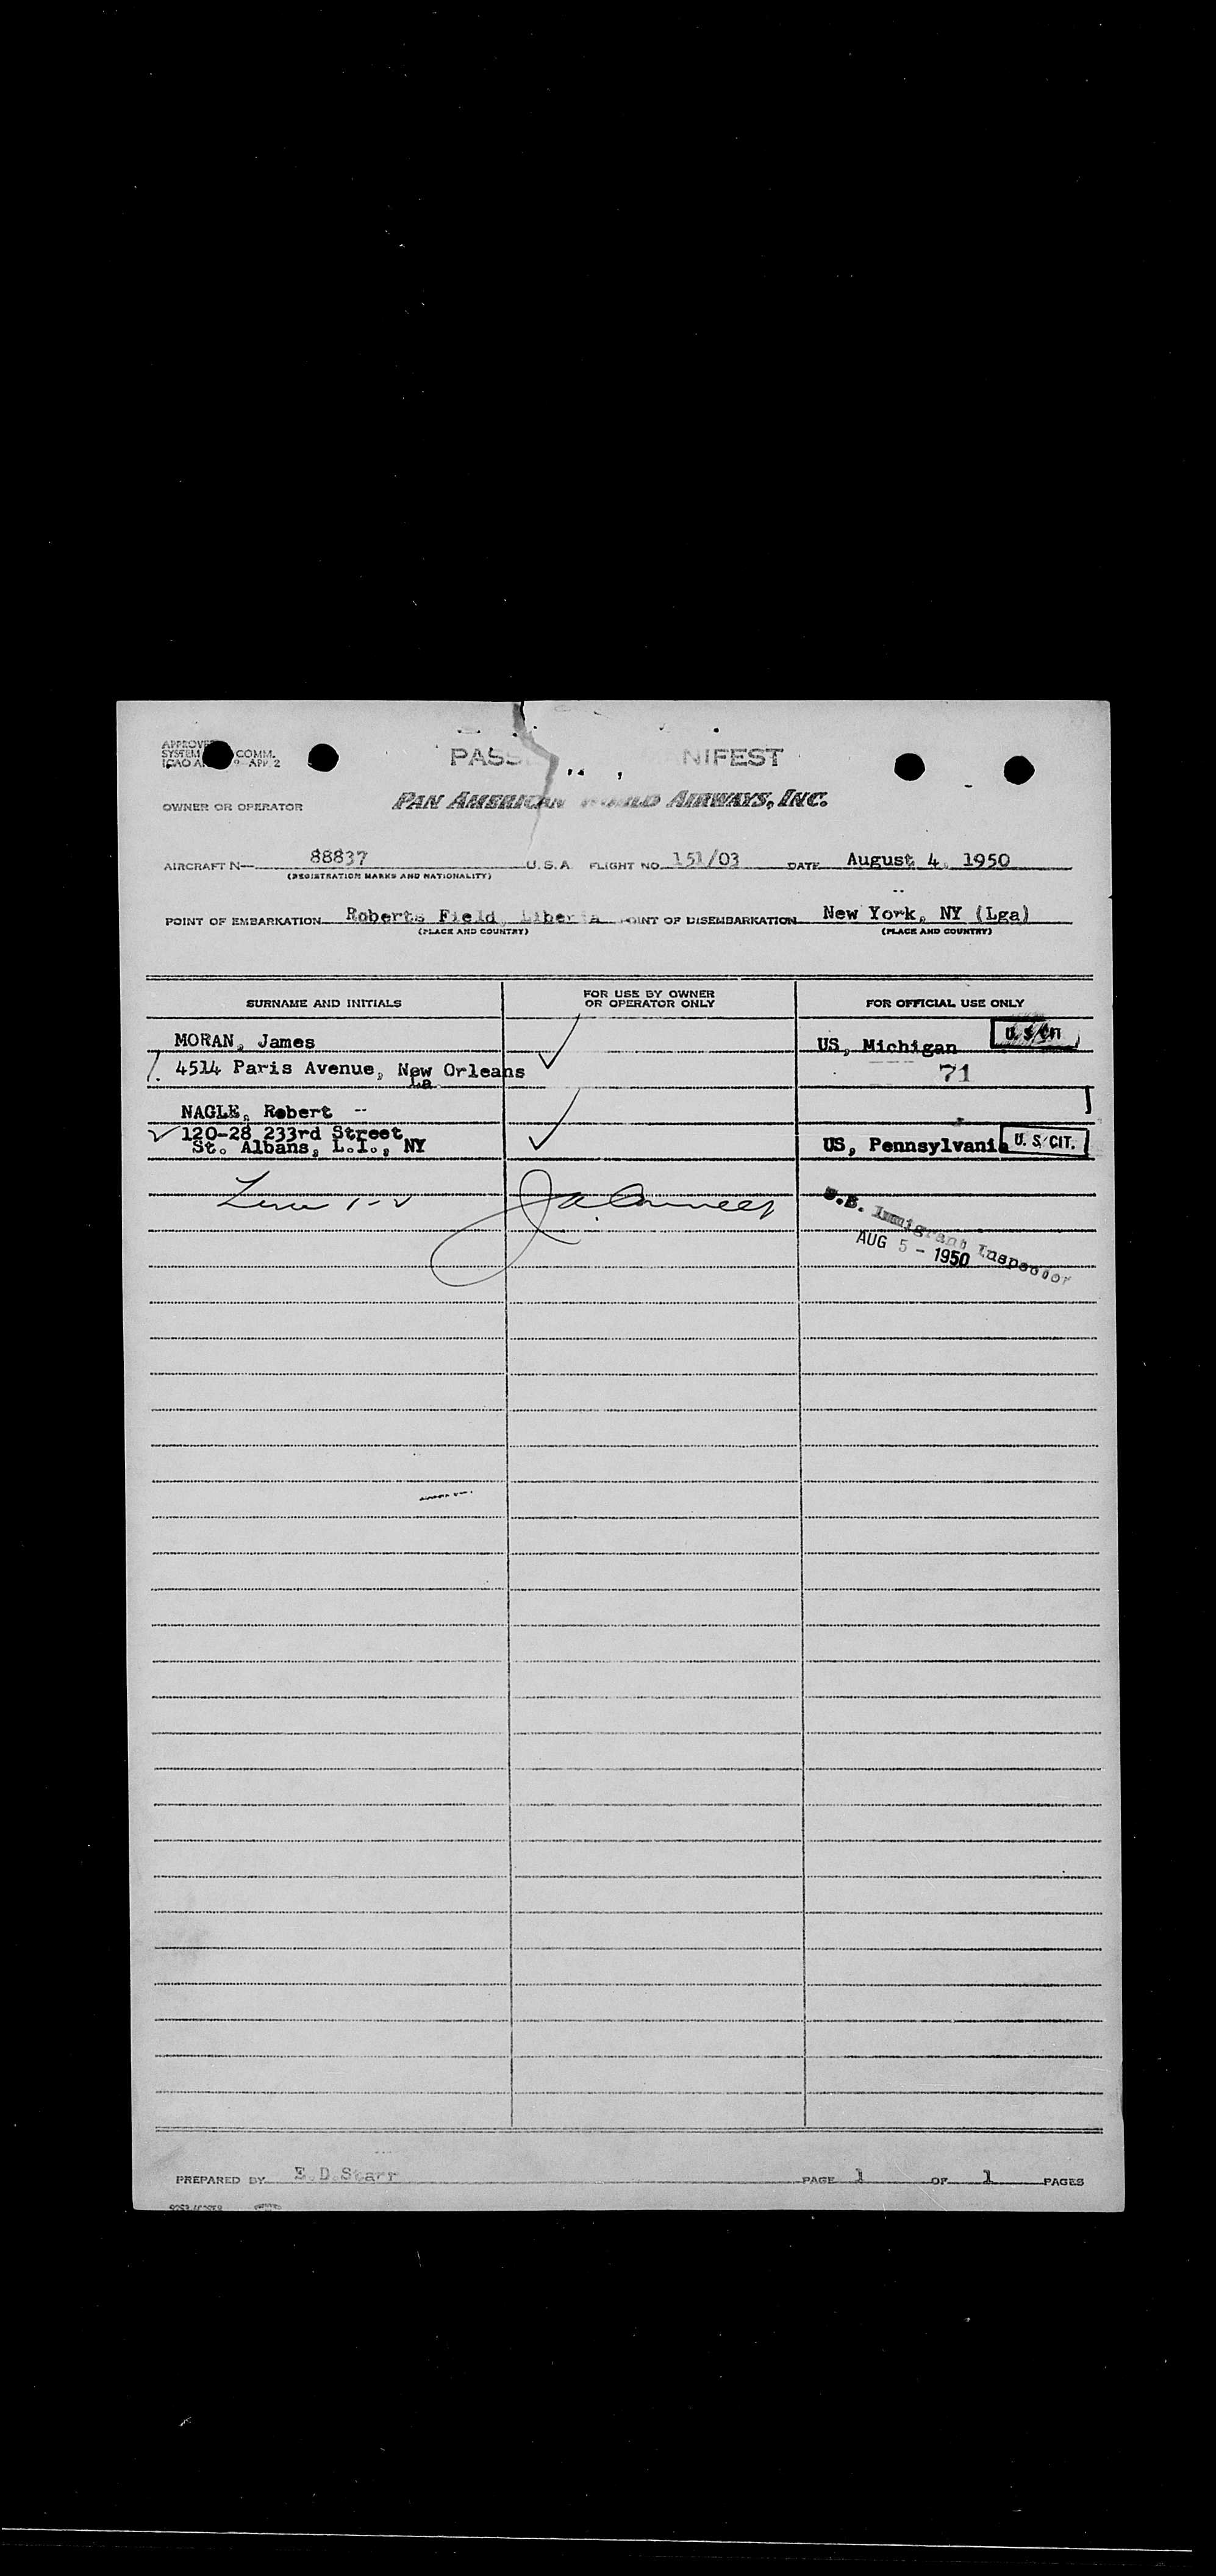 APPROVE
SYSTEM COMM.
ICAO A 9 APP. 2
PASS NIFEST
OWNER OR OPERATOR PAN AMERICAN WORLD AIRWAYS, INC.
AIRCRAFT N— 88837 U.S.A. FLIGHT NO. 151/03 DATE August 4, 1950
(REGISTRATION MARKS AND NATIONALITY)
POINT OF EMBARKATION Roberts Field, Liberia POINT OF DISEMBARKATION New York, NY (Lga)
(PLACE AND COUNTRY) (PLACE AND COUNTRY)
SURNAME AND INITIALS FOR USE BY OWNER OR OPERATOR ONLY FOR OFFICIAL USE ONLY
MORAN, James US, Michigan U. S. CIT.
1. 4514 Paris Avenue, New Orleans 71
La
NAGLE, Robert --
120-28 233rd Street
St. Albans, L.I., NY US, Pennsylvania U. S. CIT.
1-2
U.S. Immigrant Inspector
AUG 5 - 1950
PREPARED BY E.D.Starr PAGE 1 OF 1 PAGES